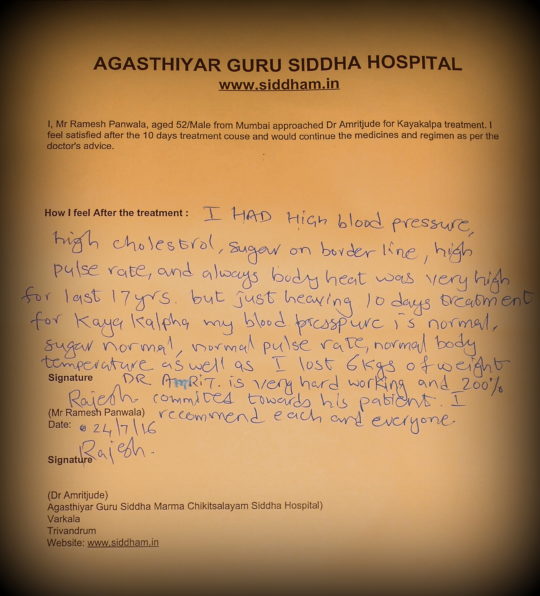 AGASTHIYAR GURU SIDDHA HOSPITAL
www.siddham.in
I, Mr Ramesh Panwala, aged 52/Male from Mumbai approached Dr Amritjude for Kayakalpa treatment. I
feel satisfied after the 10 days treatment couse and would continue the medicines and regimen as per the
doctor's advice.
How I feel After the treatment : I HAD High blood pressure,
high cholestrol, sugar on border line, high
pulse rate, and always body heat was very high
for last 17 yrs. but just heaving 10 days treatment
for Kaya Kalpha my blood presspure is normal,
sugar normal, normal pulse rate, normal body
temperature as well as I lost 6kgs of weight
Signature DR AMRIT. is very hard working and 200%
Rajesh. commited towards his patient. I
(Mr Ramesh Panwala) recommend each and everyone.
Date: 24/7/16
Signature Rajesh.
(Dr Amritjude)
Agasthiyar Guru Siddha Marma Chikitsalayam Siddha Hospital)
Varkala
Trivandrum
Website: www.siddham.in